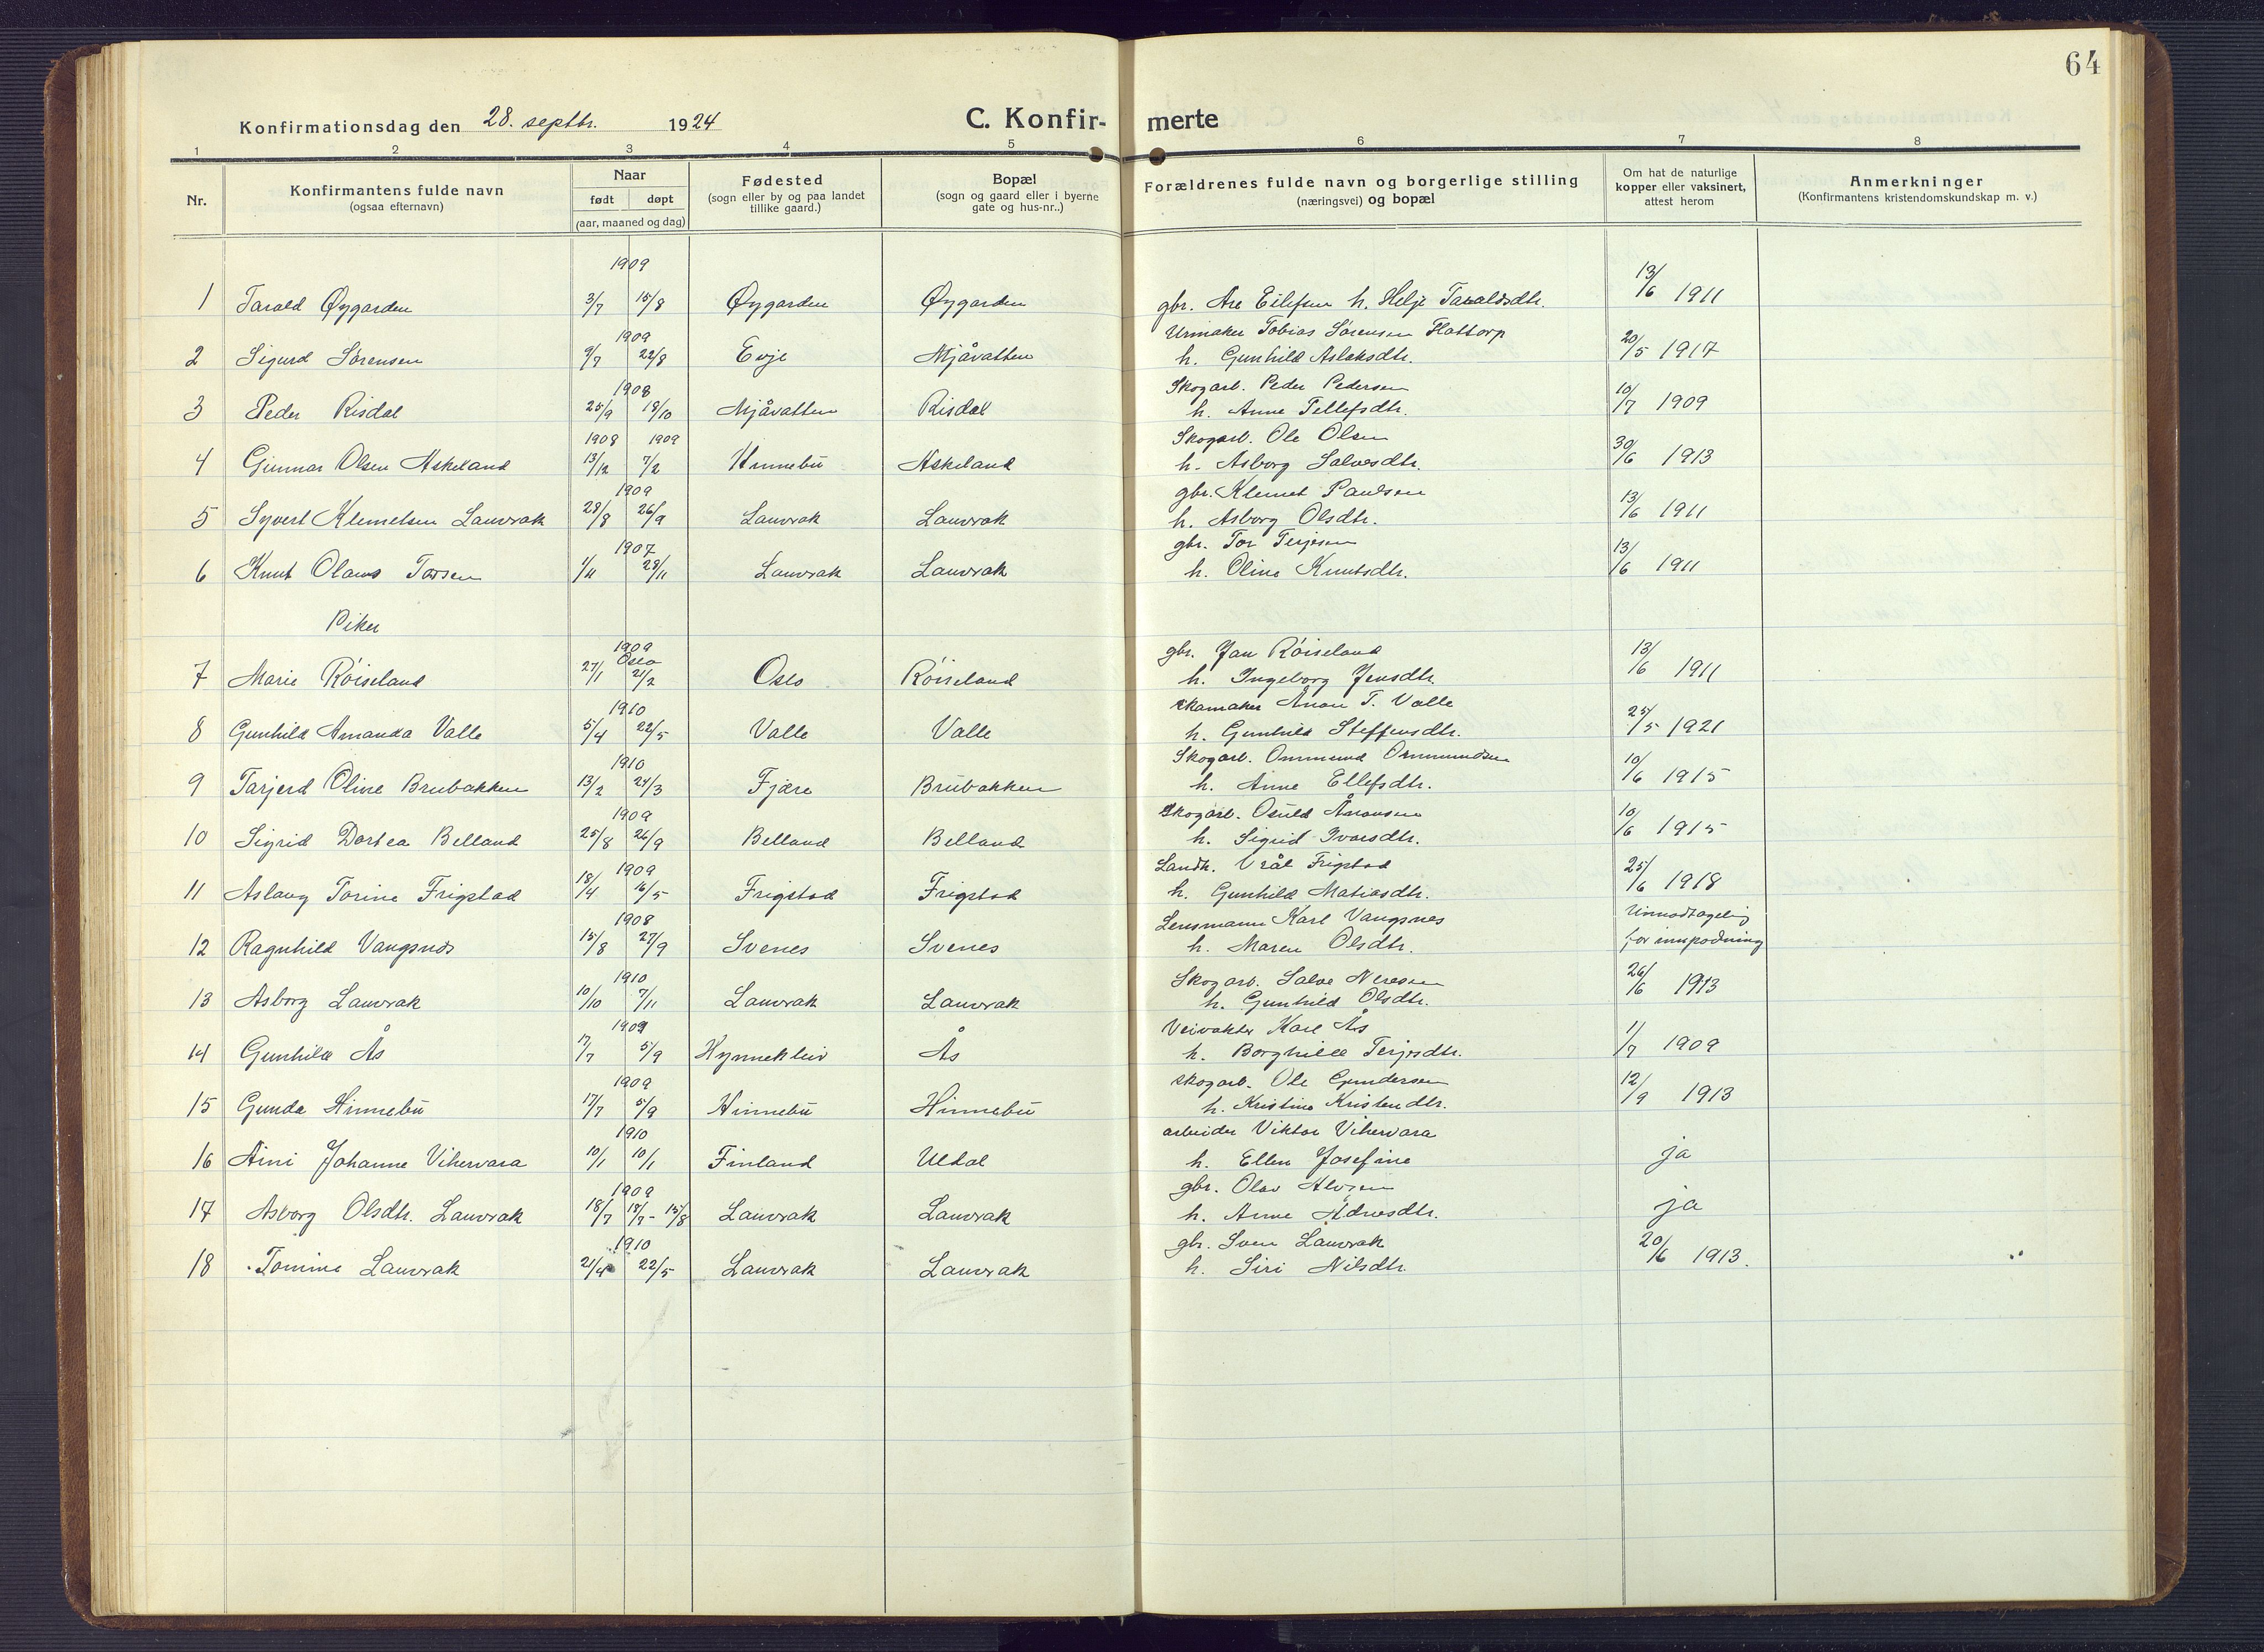 64
Konfirmationsdag den 28. septbr. 1924 C. Konfir- merte
1 2 3 4 5 6 7 8
Nr. Konfirmantens fulde navn (ogsaa efternavn) Naar født døpt (aar, maaned og dag) Fødested (sogn eller by og paa landet tillike gaard.) Bopæl (sogn og gaard eller i byerne gate og hus-nr..) Forældrenes fulde navn og borgerlige stilling (næringsvei) og bopæl Om hat de naturlige kopper eller vaksinert, attest herom Anmerkninger (Konfirmantens kristendomskundskap m. v.)
1909
1 Tarald Øygarden 3/7 15/8 Øygarden Øygarden gbr. Are Eilefsen h. Helje Taraldsdtr. 13/6 1911
1909 Urmaker Tobias Sørensen Flattorp
2 Sigurd Sørensen 9/7 22/8 Evje Mjåvatten h. Gunhild Aslaksdtr. 20/5 1917
1908 Skogarb. Peder Pedersen
3 Peder Risdal 25/9 18/10 Mjåvatten Risdal h. Anne Tellefsdtr. 10/7 1909
1908 1909 Skogarb. Ole Olsen
4 Gunnar Olsen Askeland 13/12 7/2 Hinnebu Askeland h. Asborg Salvesdtr. 30/6 1913
1909 gbr. Klemet Paulsen
5 Syvert Klemetsen Lauvrak 28/8 26/9 Lauvrak Lauvrak h. Asborg Olsdtr. 13/6 1911
1907 gbr. Tor Terjesen
6 Knut Olaus Torsen 1/11 28/11 Lauvrak Lauvrak h. Oline Knutsdtr. 13/6 1911
Piker
1909 Oslo gbr. Jan Röiseland
7 Marie Röiseland 27/1 21/2 Oslo Röiseland h. Ingeborg Jensdtr. 13/6 1911
1910 skomaker Ånon T. Valle
8 Gunhild Amanda Valle 5/4 22/5 Valle Valle h. Gunhild Steffensdtr. 25/5 1921
1910 Skogarb. Ommund Ommundsen
9 Tarjerd Oline Brubakken 13/2 24/3 Fjære Brubakken h. Anne Ellefsdtr. 10/6 1915
1909 Skogarb. Osuld Ånonsen
10 Sigrid Dortea Belland 25/8 26/9 Belland Belland h. Sigrid Ivarsdtr. 10/6 1915
1909 Landh. Vrål Frigstad
11 Aslaug Torine Frigstad 18/4 16/5 Frigstad Frigstad h. Gunhild Matiasdtr. 25/6 1918
1908 Lensmann Karl Vangsnes Uimodtagelig
12 Ragnhild Vangsnes 15/8 27/9 Svenes Svenes h. Maren Olsdtr. for innpodning
1910 Skogarb. Salve Neresen
13 Asborg Lauvrak 10/10 7/11 Lauvrak Lauvrak h. Gunhild Olsdtr. 26/6 1913
1909 Veivokter Karl Ås
14 Gunhild Ås 17/7 5/9 Hynnekleiv Ås h. Borghild Terjesdtr. 1/7 1909
1909 skogarb. Ole Gundersen
15 Gunda Hinnebu 17/7 5/9 Hinnebu Hinnebu h. Kristine Kristendtr. 12/9 1913
1910 arbeider Viktor Vihervara
16 Aini Johanne Vihervara 10/1 10/1 Finland Uldal h. Ellen Josefine ja
1909 gbr. Olav Alvsen
17 Asborg Olsdtr. Lauvrak 18/7 18/7 - 15/8 Lauvrak Lauvrak h. Anne Ådnesdtr. ja
1910 gbr. Sven Lauvrak
18 Tomine Lauvrak 21/4 22/5 Lauvrak Lauvrak h. Siri Nilsdtr. 20/6 1913.